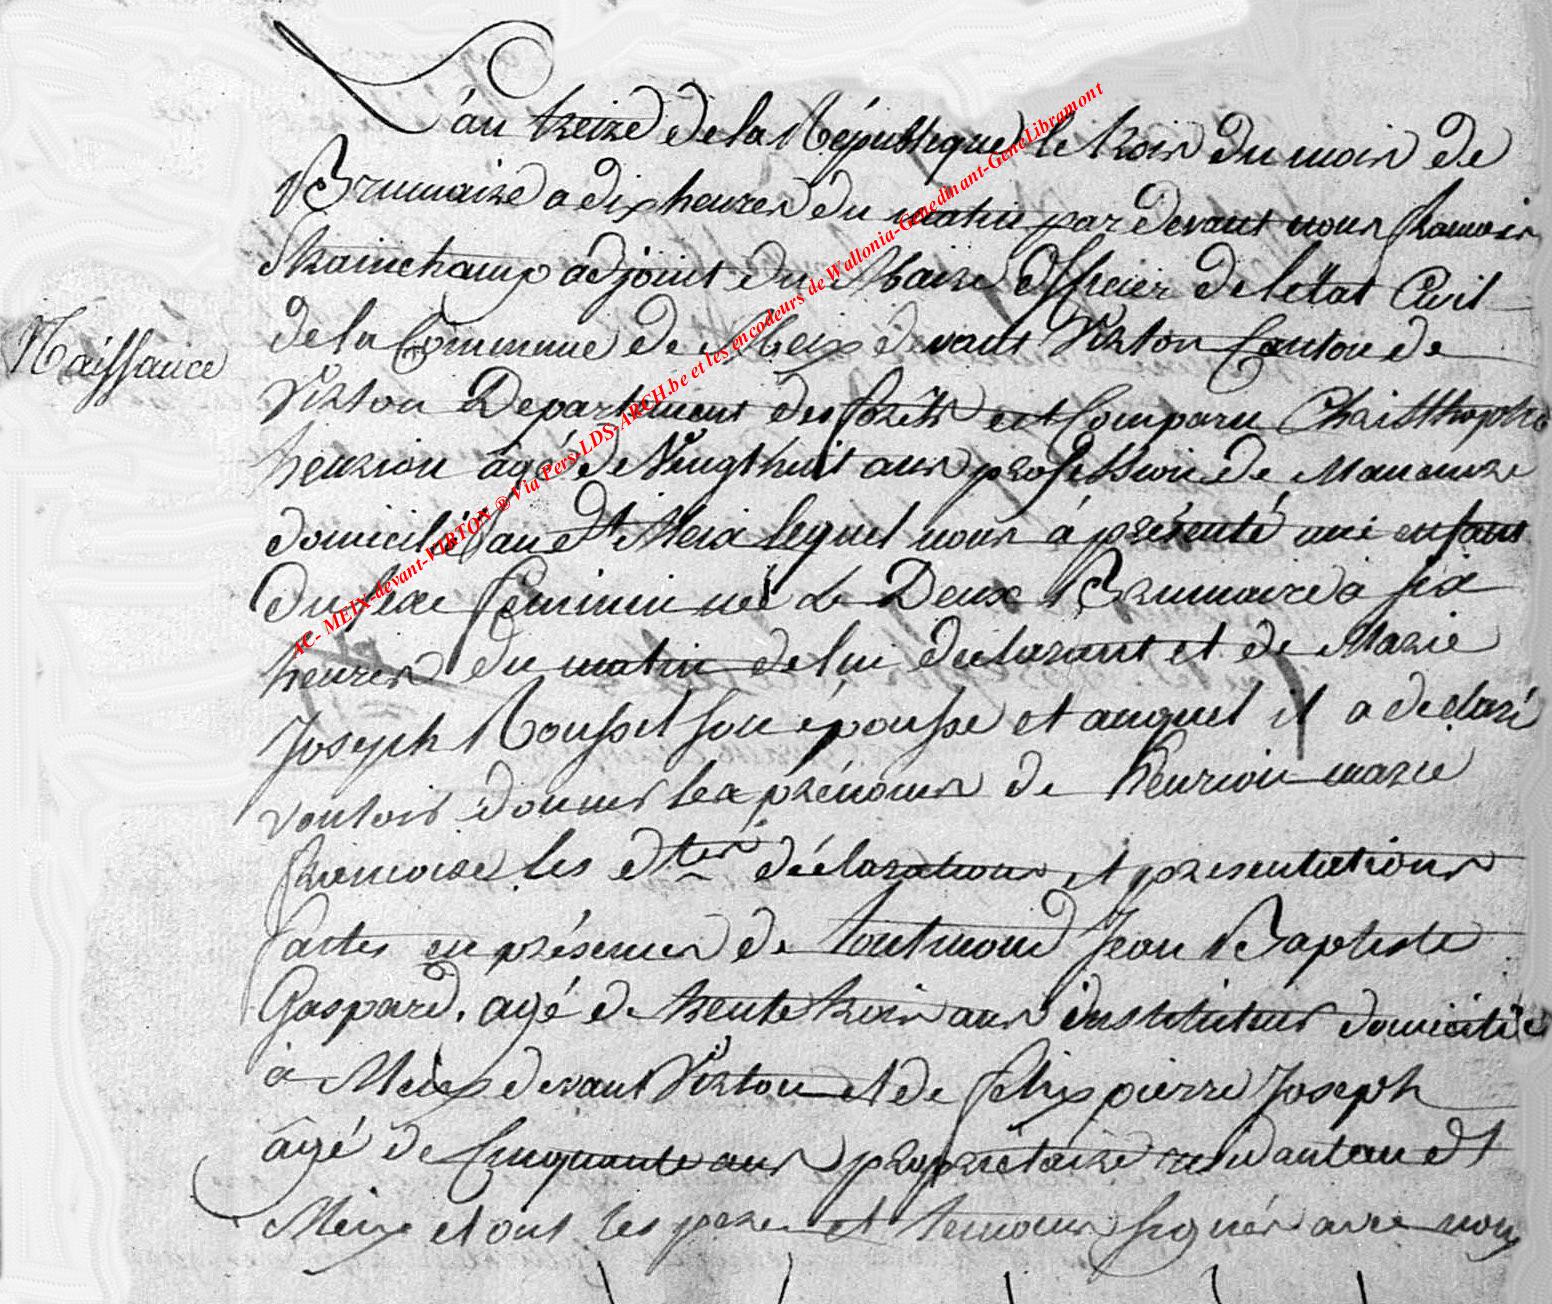 L'an treize de la République le trois du mois de
Brumaire a dix heures du matin par devant nous francois
Skainchamp adjoint du Maire officier de l'état Civil
de la Commune de Meix devant Virton Canton de
Naissance
Virton Departement des forêts est Comparu Christtophe
henrion âgé de Vingt huit ans profession de Manœuvre
domicilié au dt Meix lequel nous à présenté une enfant
du sexe feminin né Le Deux Brumaire à six
heures du matin de lui declarant et de Marie
Joseph Roussel son épousse et auquel il a déclaré
vouloir donner les prénoms de henrion marie
francoise les dtes déclarations et presentations
faites en présences de toutmond Jean Baptiste
Gaspard. agé de trente trois ans instituteur domicilié
à Meix devant Virton et de felix pierre Joseph
âgé de Cinquante ans propriétaire residant au dt
Meix et ont les pere et temoins signés avec nous
AC- MEIX-devant-VIRTON ® Via Pers-LDS-ARCH.be et les encodeurs de Wallonia-Genedinant-GeneLibramont